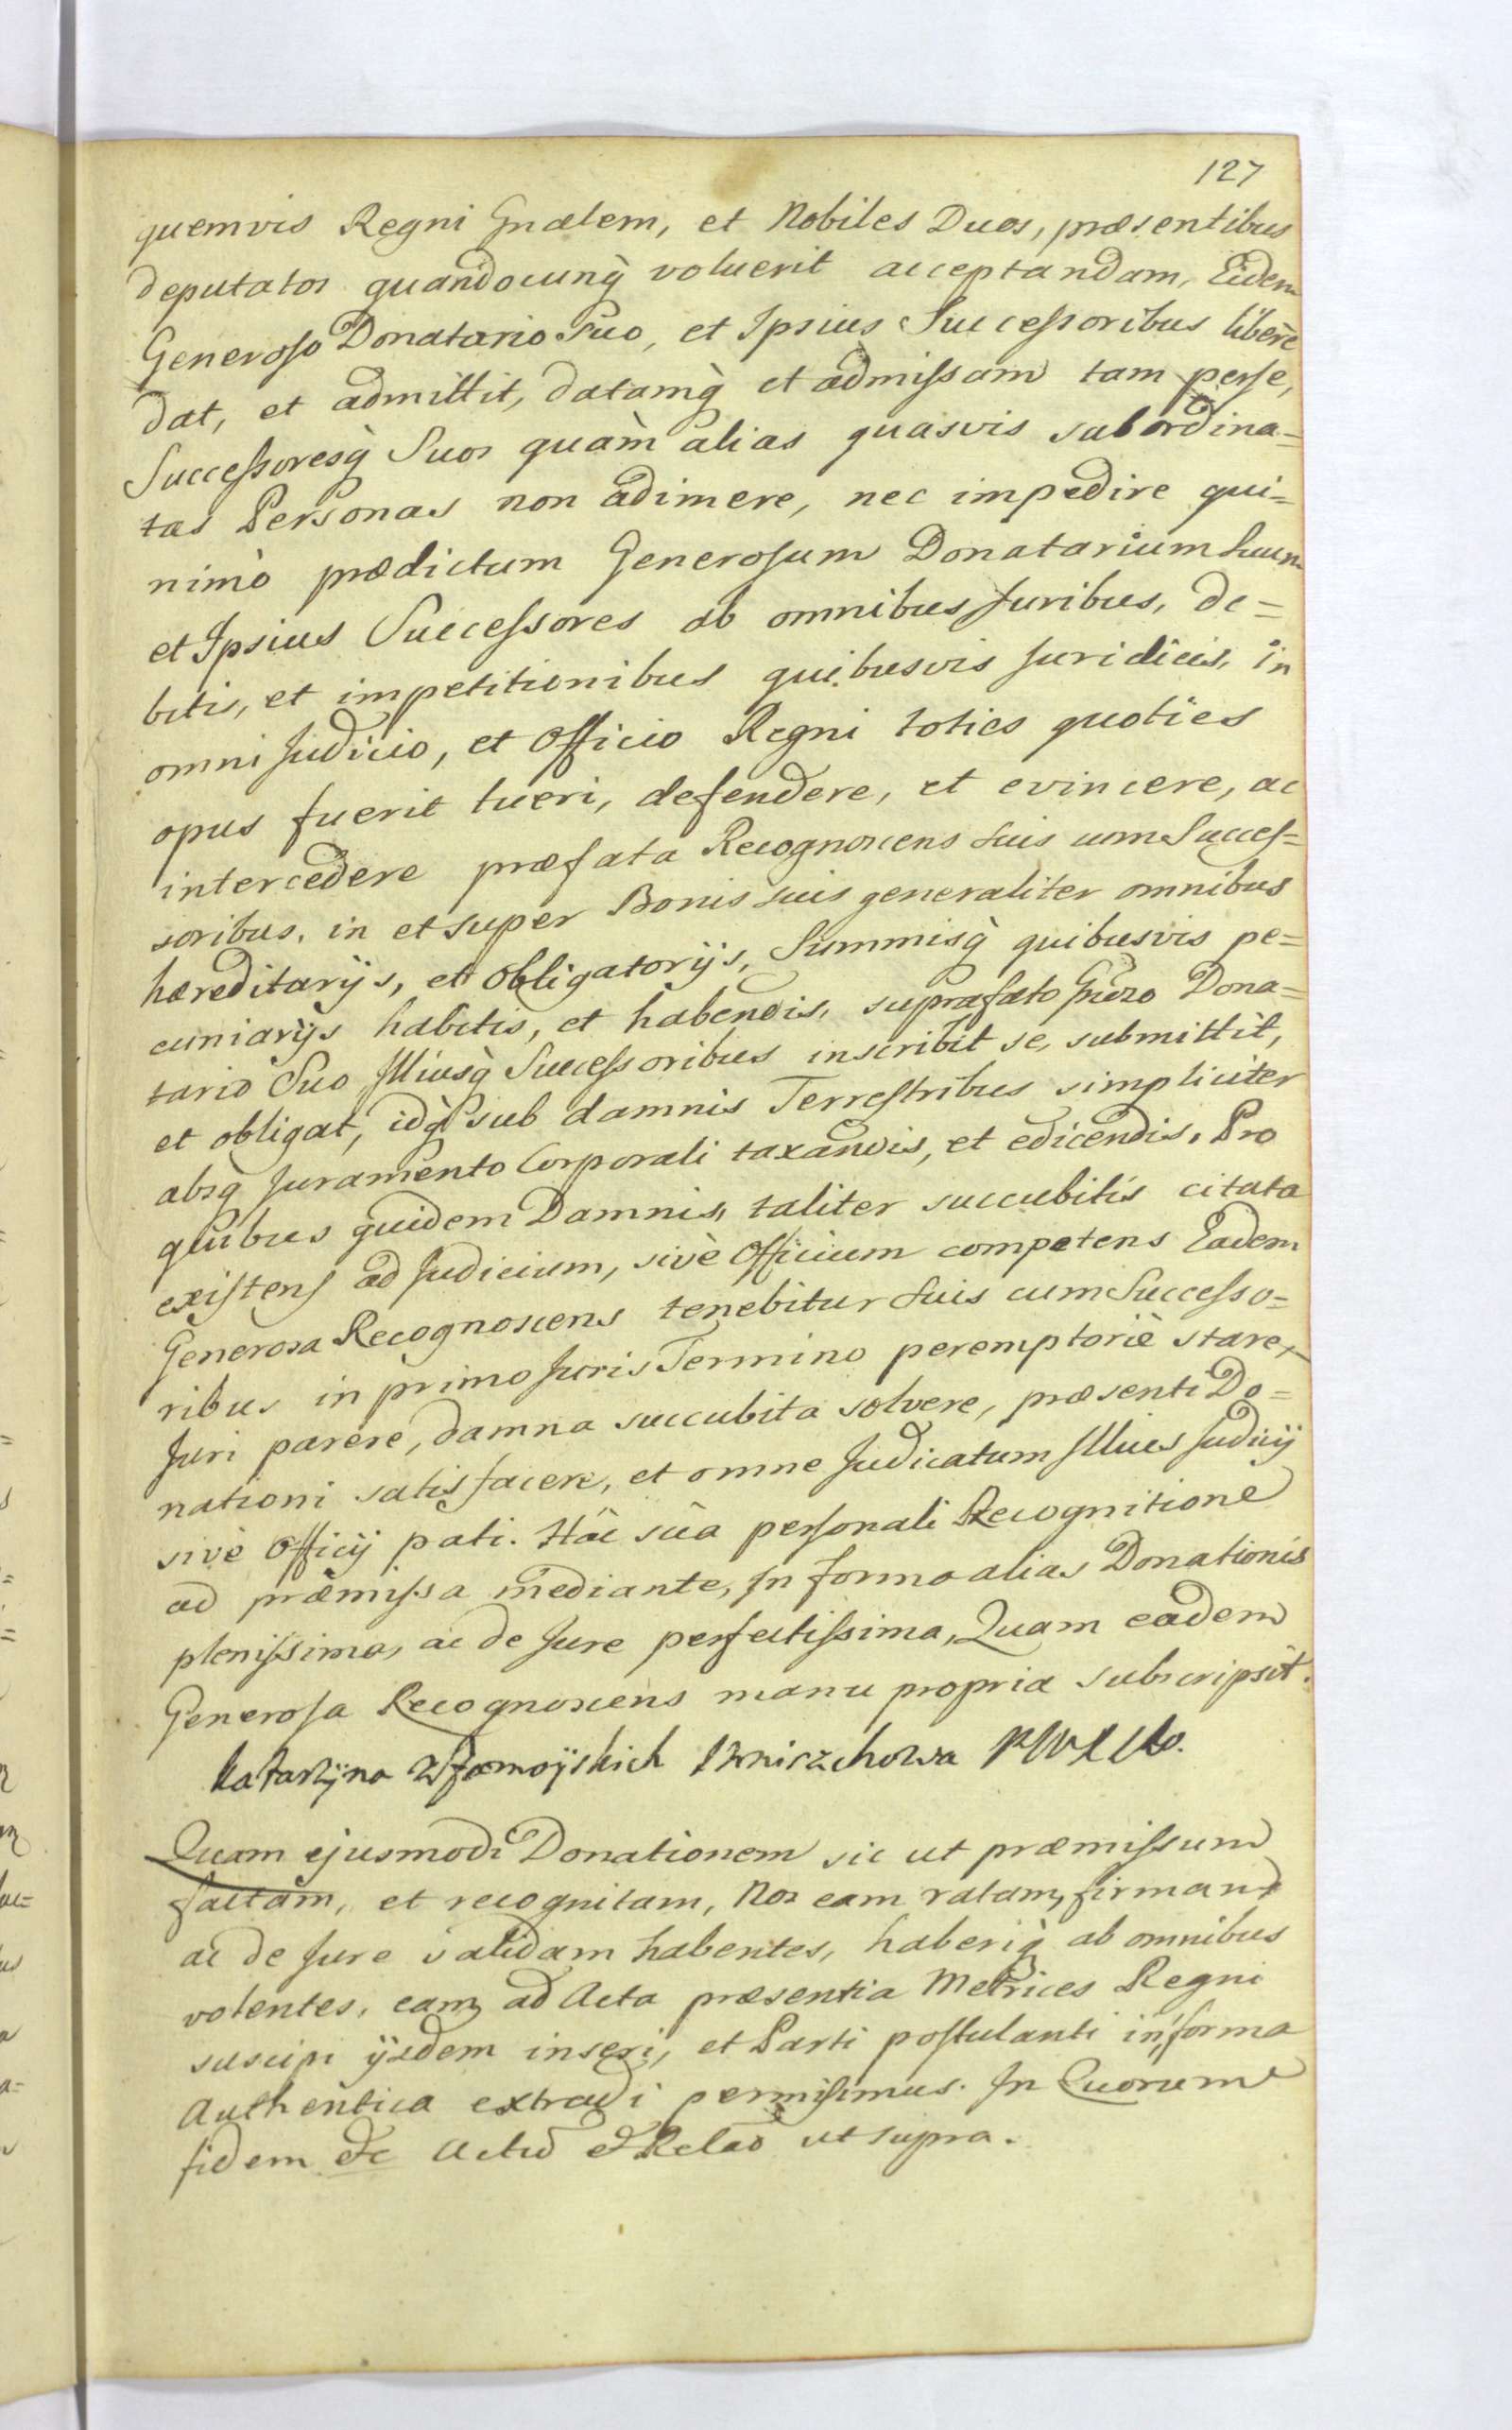 127
quemvis Regni Gnalem, et Nobiles Duos, præsentibus
deputatos quandocunq̀ voluerit acceptandam, Eidem
Generoso Donatario Suo, et Ipsius Successoribus liberè
dat, et admittit, datamq̀ et admissam tam per se,
Successoresq̀ Suos quàm alias quasvis subordina=
tas Personas non adimere, nec impedire qui=
nimò prædictum Generosum Donatarium Suum
et Ipsius Successores ab omnibus Juribus, de=
bitis, et impetitionibus quibusvis Juridicis, in
omni Judicio, et Officio Regni toties quoties
opus fuerit tueri, defendere, et evincere, ac
intercedere præfata Recognoscens suis cum Succes=
soribus, in et super Bonis suis generaliter omnibus
hæreditarijs, et obligatorijs, Summisq̀ quibusvis pe=
cuniarijs habitis, et habendis, suprafato Gnroso Dona=
tario Suo Illiusq̀ Successoribus inscribit se, submittit,
et obligat, idq̀ sub damnis Terrestribus simpliciter
absq̀ Juramento Corporali taxandis, et edicendis, Pro
quibus quidem Damnis, taliter succubitis citata
existens ad Judicium, sivè Officium competens Eadem
Generosa Recognoscens tenebitur Suis cum Successo=
ribus in primo Juris Termino peremptoriè stare,
Juri parere, damna succubita solvere, præsenti Do=
nationi satisfacere, et omne Judicatum Illius Judicij
sivè Officij pati. Hâc suâ personali Recognitione
ad præmissa mediante, In forma alias Donationis
plenissima, ac de Jure perfectissima, Quam eadem
Generosa Recognoscens manu propria subscripsit.
Katarzyna z Zamoyskich Mniszchowa
Quam ejusmodi Donationem sic ut præmissum
factam, et recognitam, Nos eam ratam, firmam
ac de Jure validam habentes, haberiq̀ ab omnibus
volentes, eam ad Acta præsentia Metrices Regni
suscipi ijsdem inseri, et Parti postulanti in forma
Authentica extradi permisimus. In Quorum
fidem &c Actũ & Relaõ ut supra.